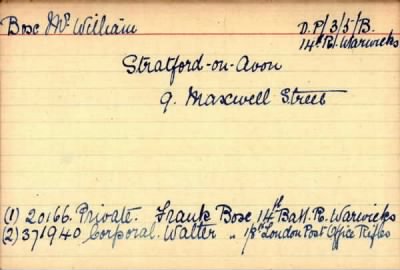 Bose Mr. William D.P/3/5/B.
14th R. Warwicks
Stratford-on-Avon
9. Maxwell Street
(1) 20166. Private. Frank Bose 14th Batt. R. Warwicks
(2) 371940 Corporal. Walter " London Post Office Rifles